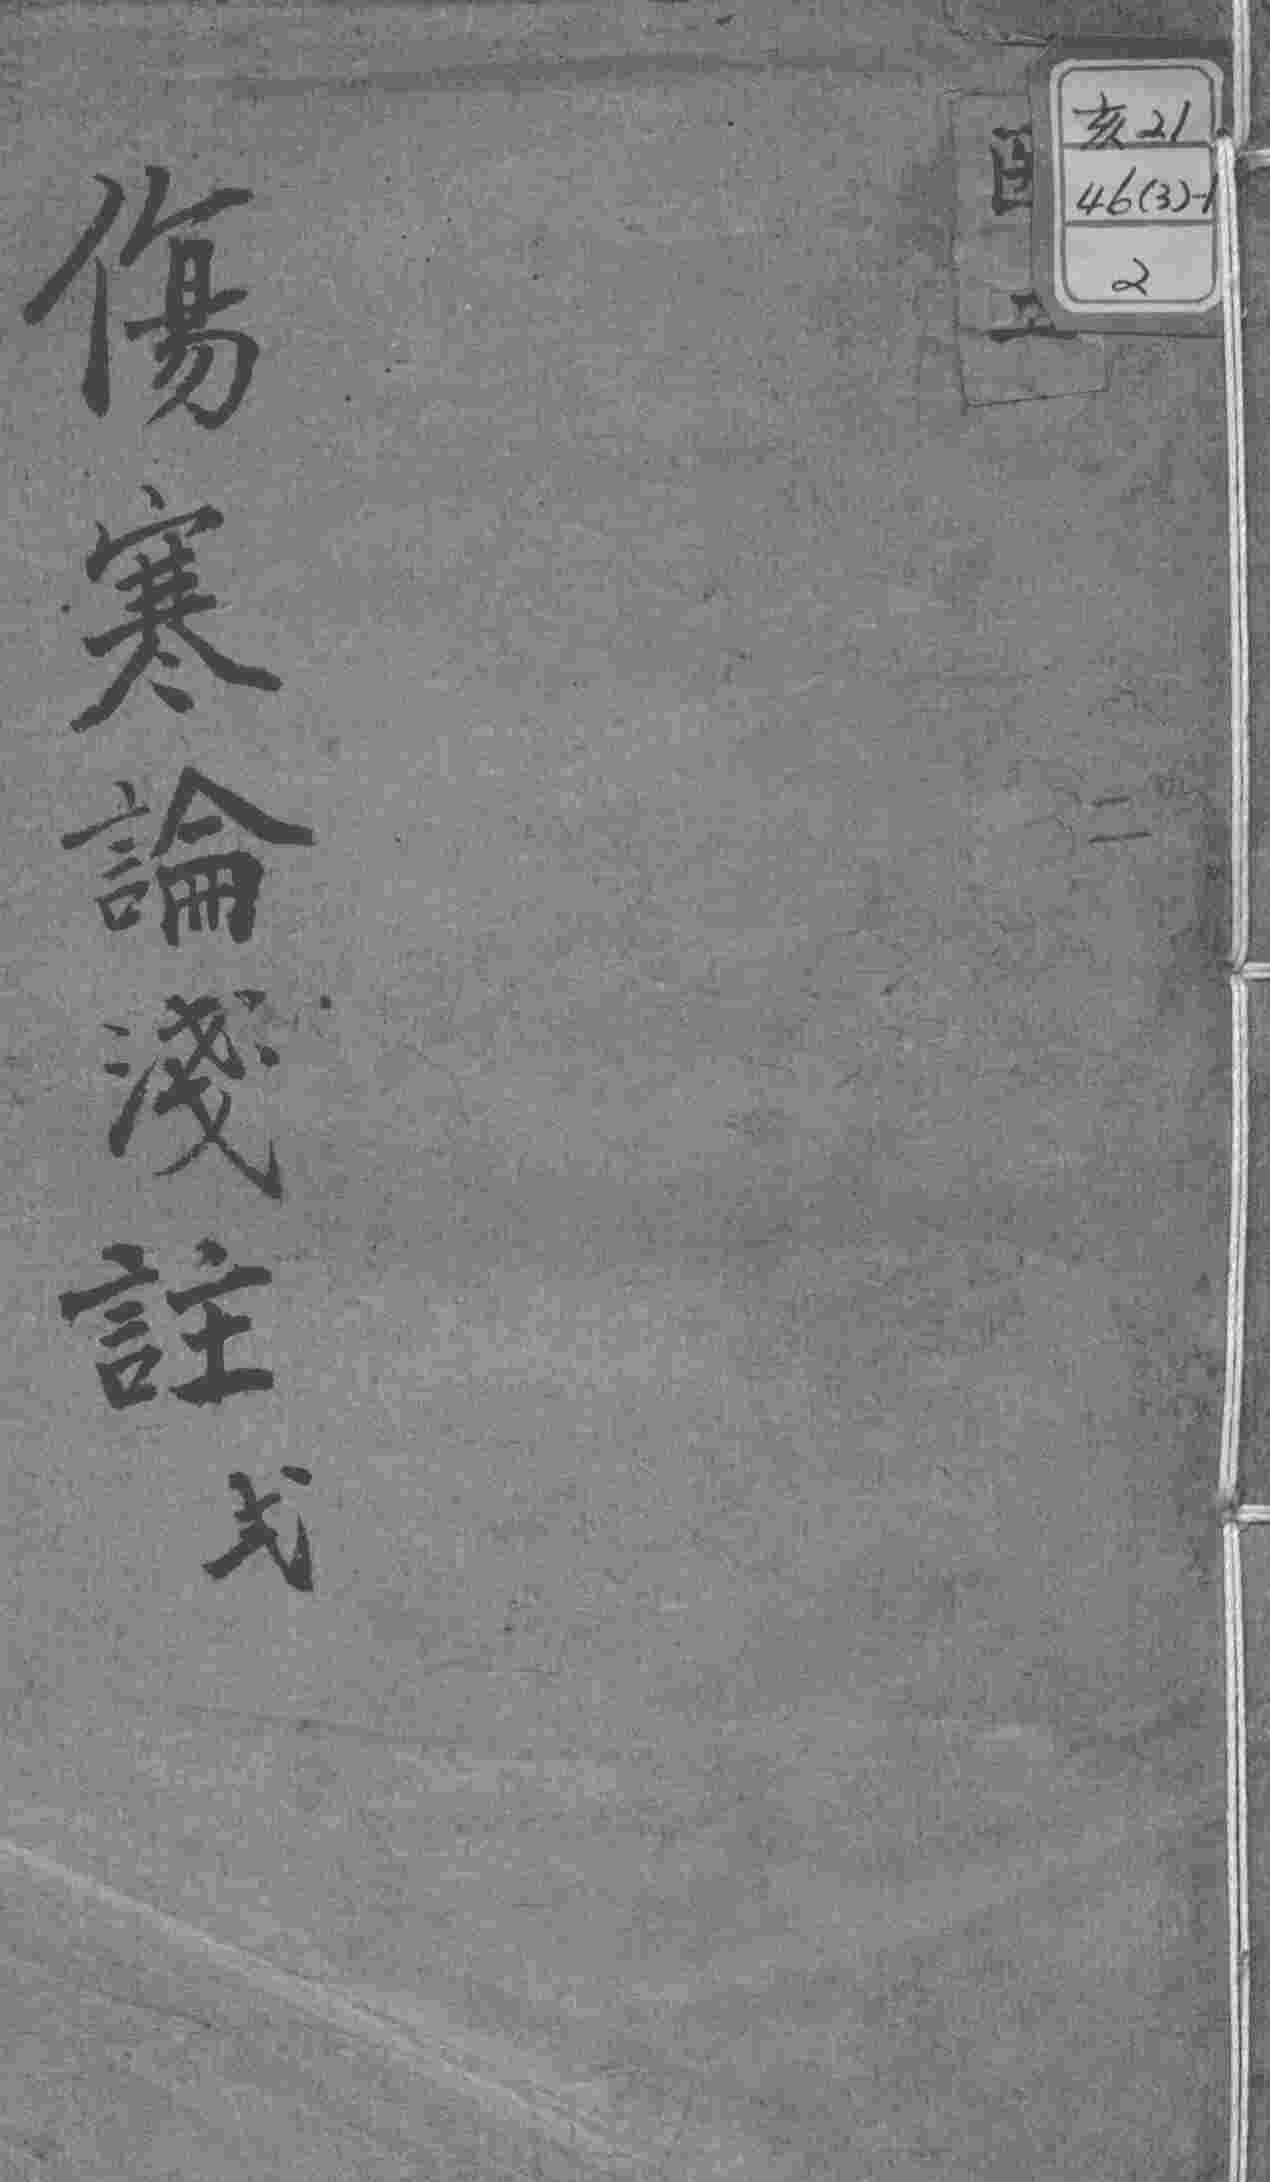 亥21
46(3)-1
2
二
傷寒論淺註 弍